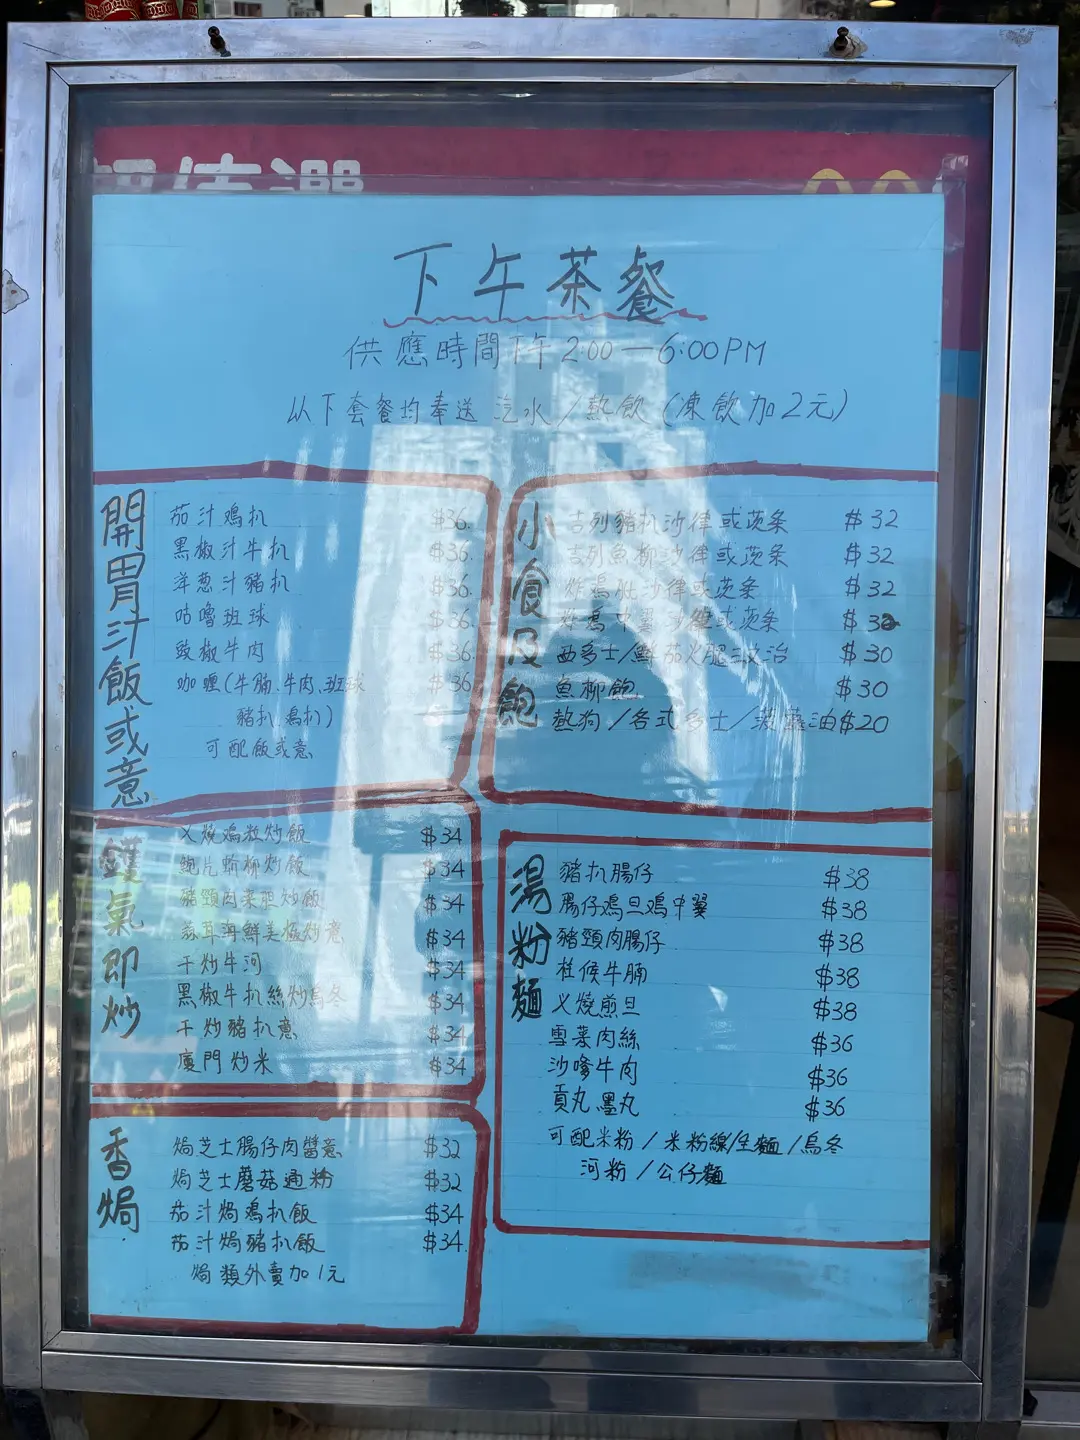 下午茶餐
供應時間下午2:00—6:00PM
以下套餐均奉送 汽水/熱飲(凍飲加2元)
開胃汁飯或意
茄汁鳮扒 $36.
黑椒汁牛扒 $36.
洋葱汁豬扒 $36.
咕嚕班球 $36.
豉椒牛肉 $36.
咖喱(牛腩、牛肉、班球 $36
豬扒 鳮扒)
可配飯或意
小食及飽
吉列豬扒沙律或茨条 $32
吉列魚柳沙律或茨条 $32
炸鳮髀沙律或茨条 $32
炸鳮中翼沙律或茨条 $32
西多士/鮮茄火腿 治 $30
魚柳飽 $30
熱狗/各式多士/ 油 $20
鑊氣即炒
叉燒鳮粒炒飯 $34
鮑片 柳炒飯 $34
豬頸肉菜 炒飯 $34
海鮮 炒意 $34
干炒牛河 $34
黑椒牛扒絲炒烏冬 $34
干炒豬扒意 $34
廈門炒米 $34
湯粉麵
豬扒腸仔 $38
腸仔鳮旦鳮中翼 $38
豬頸肉腸仔 $38
柱候牛腩 $38
叉燒煎旦 $38
雪菜肉絲 $36
沙嗲牛肉 $36
貢丸墨丸 $36
可配米粉/米粉線/生麵/烏冬
河粉/公仔麵
香焗
焗芝士腸仔肉醬意 $32
焗芝士蘑菇通粉 $32
茄汁焗鳮扒飯 $34
茄汁焗豬扒飯 $34
焗類外賣加1元